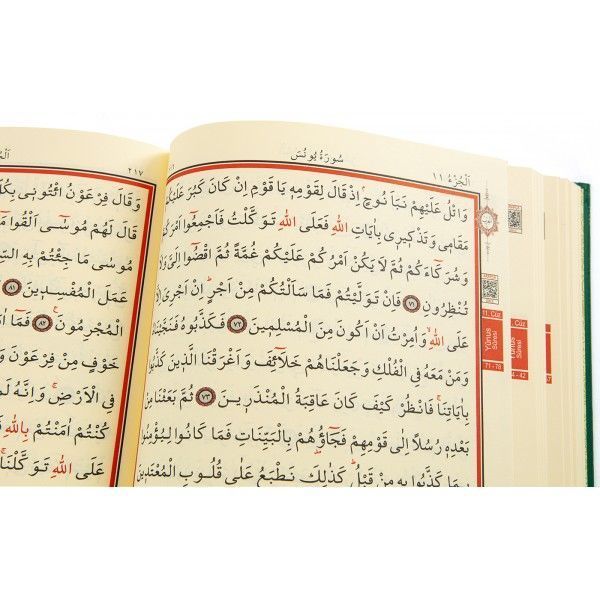 سُورَةُ يُونُسَ
اَلْجُزْءُ ١١
وَاتْلُ عَلَيْهِمْ نَبَاَ نُوحٍۢ اِذْ قَالَ لِقَوْمِه۪ يَا قَوْمِ اِنْ كَانَ كَبُرَ عَلَيْكُمْ
مَقَام۪ي وَتَذْك۪ير۪ي بِاٰيَاتِ اللّٰهِ فَعَلَى اللّٰهِ تَوَكَّلْتُ فَاَجْمِعُٓوا اَمْرَكُمْ
وَشُرَكَٓاءَكُمْ ثُمَّ لَا يَكُنْ اَمْرُكُمْ عَلَيْكُمْ غُمَّةً ثُمَّ اقْضُٓوا اِلَيَّ وَلَا
تُنْظِرُونِ ﴿٧١﴾ فَاِنْ تَوَلَّيْتُمْ فَمَا سَاَلْتُكُمْ مِنْ اَجْرٍۜ اِنْ اَجْرِيَ اِلَّا
عَلَى اللّٰهِۙ وَاُمِرْتُ اَنْ اَكُونَ مِنَ الْمُسْلِم۪ينَ ﴿٧٢﴾ فَكَذَّبُوهُ فَنَجَّيْنَاهُ
وَمَنْ مَعَهُ فِي الْفُلْكِ وَجَعَلْنَاهُمْ خَلَٓائِفَ وَاَغْرَقْنَا الَّذ۪ينَ كَذَّبُوا
بِاٰيَاتِنَاۚ فَانْظُرْ كَيْفَ كَانَ عَاقِبَةُ الْمُنْذَر۪ينَ ﴿٧٣﴾ ثُمَّ بَعَثْنَا مِنْ
بَعْدِه۪ رُسُلًا اِلٰى قَوْمِهِمْ فَجَٓاؤُ۫هُمْ بِالْبَيِّنَاتِ فَمَا كَانُوا لِيُؤْمِنُوا
بِمَا كَذَّبُوا بِه۪ مِنْ قَبْلُۜ كَذٰلِكَ نَطْبَعُ عَلٰى قُلُوبِ الْمُعْتَد۪ينَ
11. Cüz
Yûnus
Sûresi
71 - 78
Cüz
4 - 42
٢١٧
وَقَالَ فِرْعَوْنُ ائْتُون۪ي بِكُلِّ
قَالَ لَهُمْ مُوسٰٓى اَلْقُوا مَا
مُوسٰى مَا جِئْتُمْ بِهِ
عَمَلَ الْمُفْسِد۪ينَ ﴿٨١﴾
الْمُجْرِمُونَ۟ ﴿٨٢﴾ فَمَٓا
خَوْفٍ مِنْ فِرْعَوْنَ
فِي الْاَرْضِۚ وَاِنَّهُ
كُنْتُمْ اٰمَنْتُمْ بِاللّٰهِ
عَلَى اللّٰهِ تَوَكَّلْنَاۚ